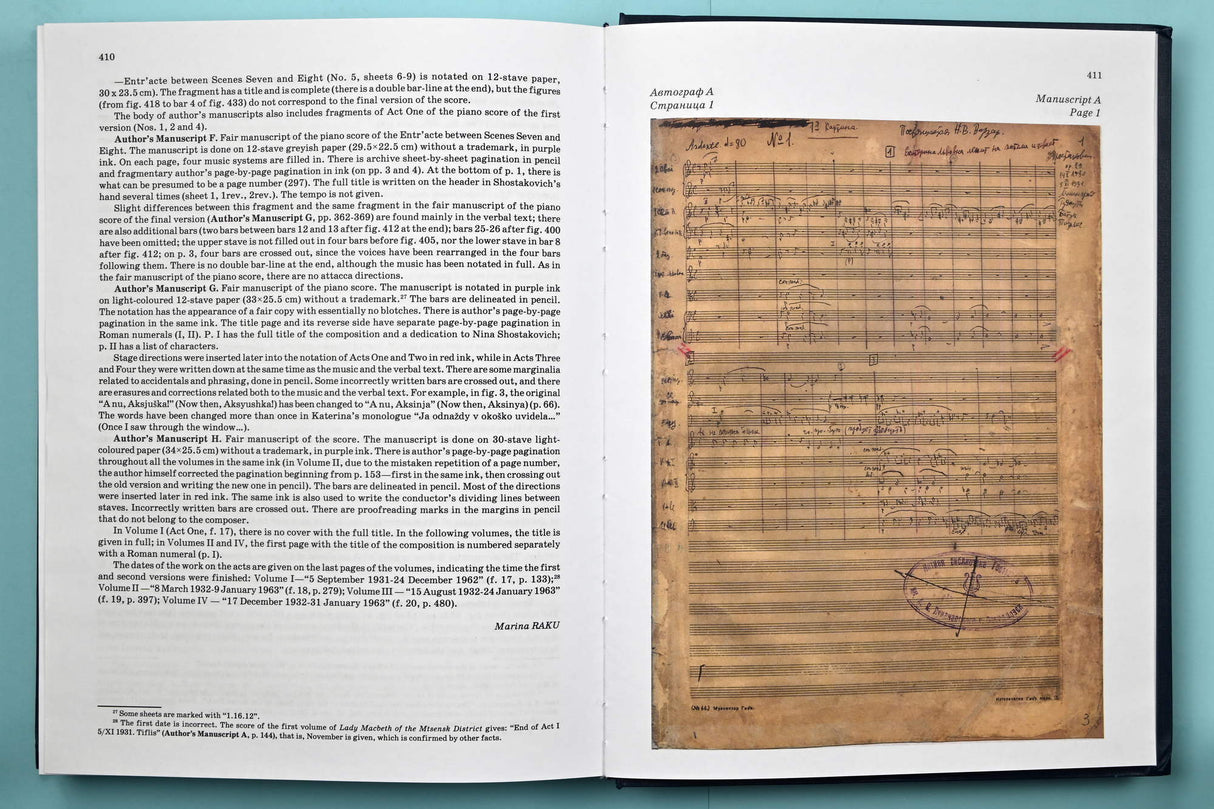 410
—Entr'acte between Scenes Seven and Eight (No. 5, sheets 6-9) is notated on 12-stave paper,
30 x 23.5 cm). The fragment has a title and is complete (there is a double bar-line at the end), but the figures
(from fig. 418 to bar 4 of fig. 433) do not correspond to the final version of the score.
The body of author's manuscripts also includes fragments of Act One of the piano score of the first
version (Nos. 1, 2 and 4).
Author's Manuscript F. Fair manuscript of the piano score of the Entr'acte between Scenes Seven and
Eight. The manuscript is done on 12-stave greyish paper (29.5×22.5 cm) without a trademark, in purple
ink. On each page, four music systems are filled in. There is archive sheet-by-sheet pagination in pencil
and fragmentary author's page-by-page pagination in ink (on pp. 3 and 4). At the bottom of p. 1, there is
what can be presumed to be a page number (297). The full title is written on the header in Shostakovich's
hand several times (sheet 1, 1rev., 2rev.). The tempo is not given.
Slight differences between this fragment and the same fragment in the fair manuscript of the piano
score of the final version (Author's Manuscript G, pp. 362-369) are found mainly in the verbal text; there
are also additional bars (two bars between bars 12 and 13 after fig. 412 at the end); bars 25-26 after fig. 400
have been omitted; the upper stave is not filled out in four bars before fig. 405, nor the lower stave in bar 8
after fig. 412; on p. 3, four bars are crossed out, since the voices have been rearranged in the four bars
following them. There is no double bar-line at the end, although the music has been notated in full. As in
the fair manuscript of the piano score, there are no attacca directions.
Author's Manuscript G. Fair manuscript of the piano score. The manuscript is notated in purple ink
on light-coloured 12-stave paper (33×25.5 cm) without a trademark.27 The bars are delineated in pencil.
The notation has the appearance of a fair copy with essentially no blotches. There is author's page-by-page
pagination in the same ink. The title page and its reverse side have separate page-by-page pagination in
Roman numerals (I, II). P. I has the full title of the composition and a dedication to Nina Shostakovich;
p. II has a list of characters.
Stage directions were inserted later into the notation of Acts One and Two in red ink, while in Acts Three
and Four they were written down at the same time as the music and the verbal text. There are some marginalia
related to accidentals and phrasing, done in pencil. Some incorrectly written bars are crossed out, and there
are erasures and corrections related both to the music and the verbal text. For example, in fig. 3, the original
“A nu, Aksjuška!” (Now then, Aksyushka!) has been changed to “A nu, Aksinja” (Now then, Aksinya) (p. 66).
The words have been changed more than once in Katerina's monologue “Ja odnaždy v okoško uvidela...”
(Once I saw through the window...).
Author's Manuscript H. Fair manuscript of the score. The manuscript is done on 30-stave light-
coloured paper (34×25.5 cm) without a trademark, in purple ink. There is author's page-by-page pagination
throughout all the volumes in the same ink (in Volume II, due to the mistaken repetition of a page number,
the author himself corrected the pagination beginning from p. 153—first in the same ink, then crossing out
the old version and writing the new one in pencil). The bars are delineated in pencil. Most of the directions
were inserted later in red ink. The same ink is also used to write the conductor's dividing lines between
staves. Incorrectly written bars are crossed out. There are proofreading marks in the margins in pencil
that do not belong to the composer.
In Volume I (Act One, f. 17), there is no cover with the full title. In the following volumes, the title is
given in full; in Volumes II and IV, the first page with the title of the composition is numbered separately
with a Roman numeral (p. I).
The dates of the work on the acts are given on the last pages of the volumes, indicating the time the first
and second versions were finished: Volume I—“5 September 1931-24 December 1962” (f. 17, p. 133);28
Volume II —“8 March 1932-9 January 1963” (f. 18, p. 279); Volume III — “15 August 1932-24 January 1963”
(f. 19, p. 397); Volume IV — “17 December 1932-31 January 1963” (f. 20, p. 480).
Marina RAKU
27 Some sheets are marked with “1.16.12”.
28 The first date is incorrect. The score of the first volume of Lady Macbeth of the Mtsensk District gives: “End of Act I
5/XI 1931. Tiflis” (Author's Manuscript A, p. 144), that is, November is given, which is confirmed by other facts.
411
Автограф А
Страница 1
Manuscript A
Page 1
1я Картина.
Посвящается Н.В. Варзар.
№1.
1
3